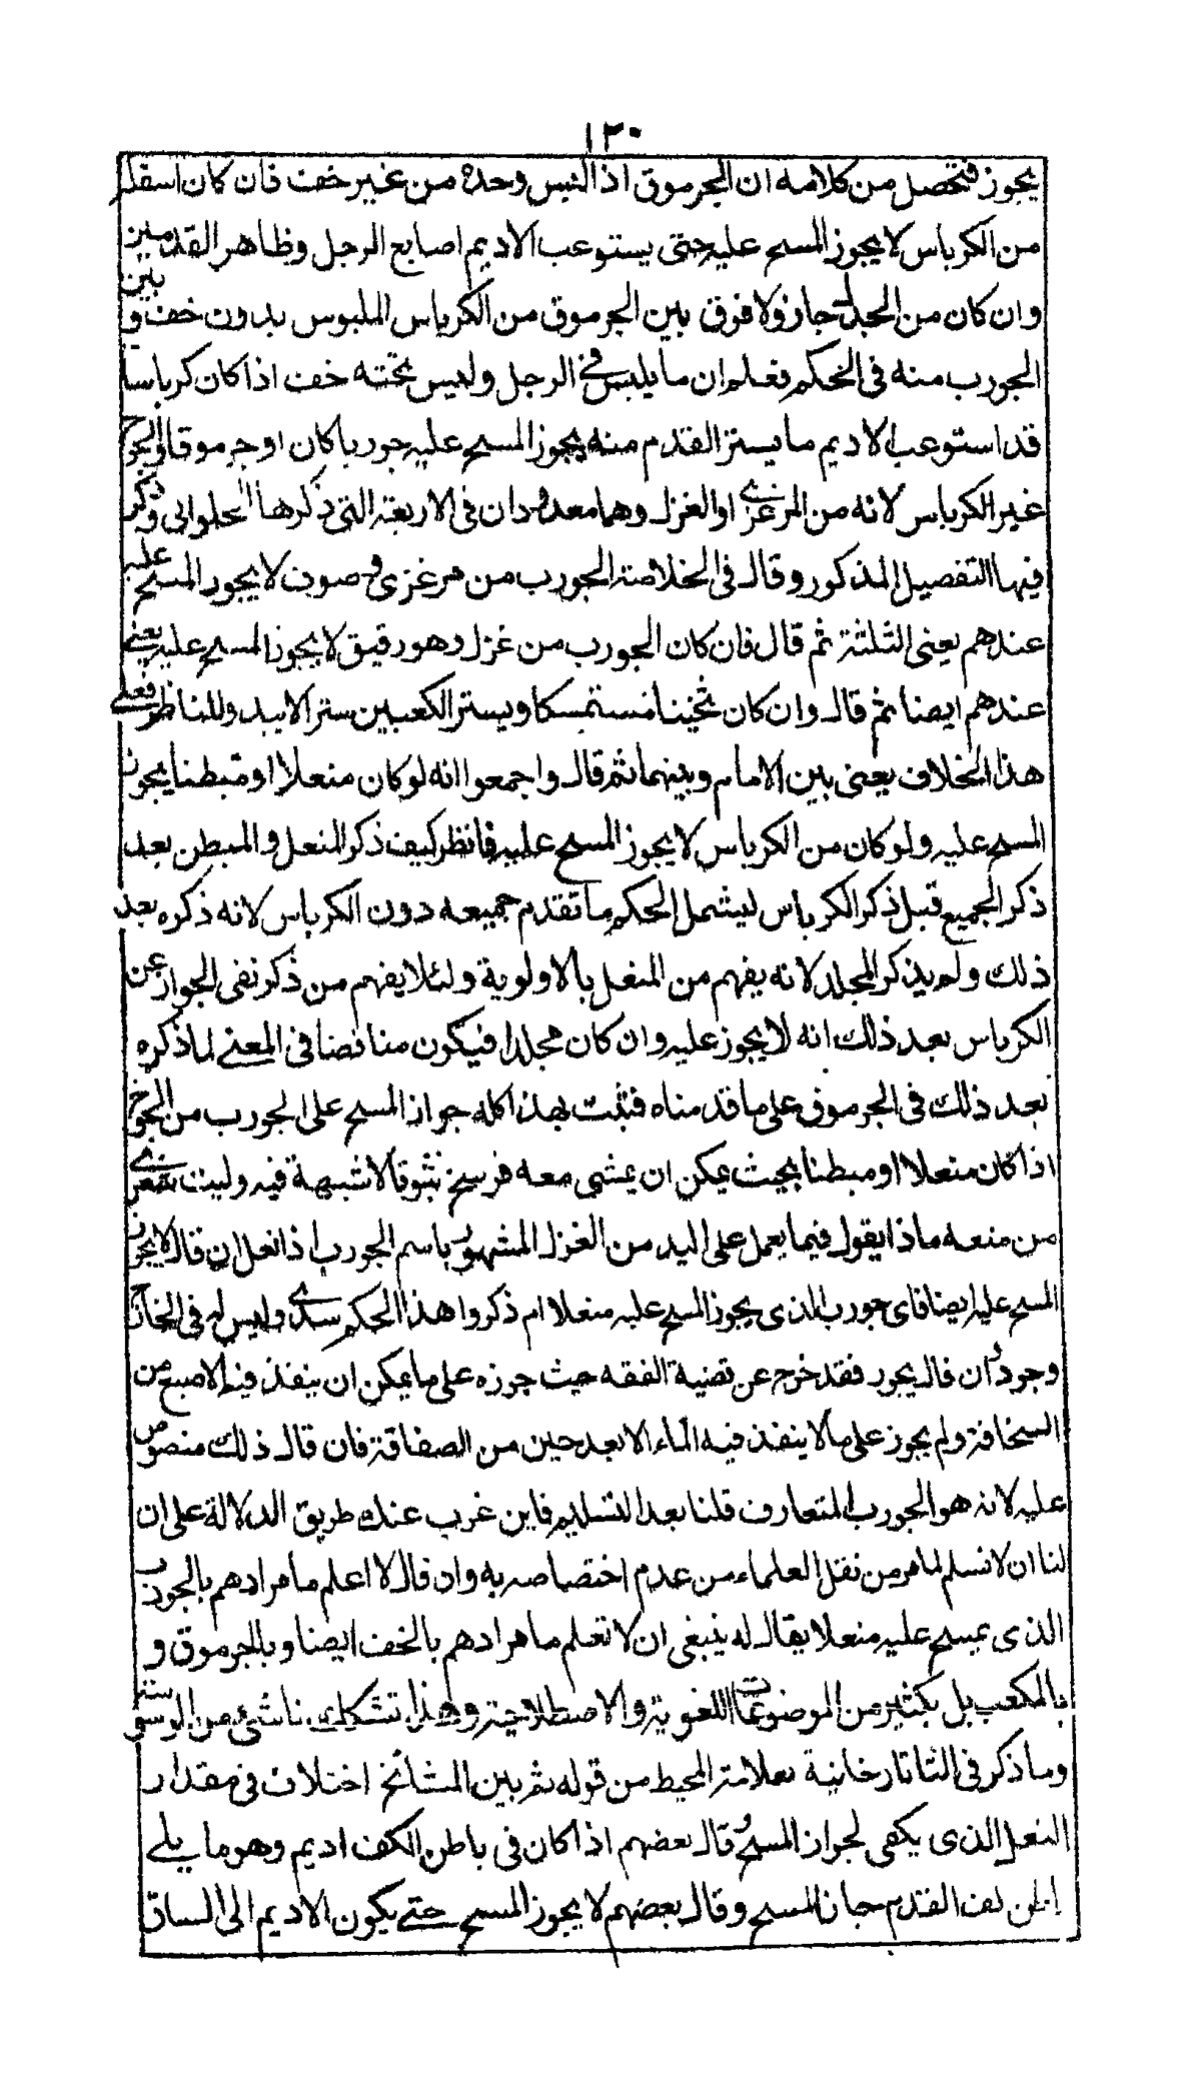 ١٢٠
يجوز فتحصل من كلامه ان الجرموق اذا لبس وحده من غير خف فان كان اسفله
من الكرباس لا يجوز المسح عليه حتى يستوعب الاديم اصابع الرجل وظاهر القدمين
وان كان من الجلد جاز ولا فرق بين الجرموق من الكرباس الملبوس بدون خف و بين
الجورب منه فى الحكم فعلم ان ما يلبس فى الرجل وليس تحته خف اذا كان كرباسا
قد استوعب الاديم ما يستر القدم منه يجوز المسح عليه جوربا كان او جرموقا والجوخ
غير الكرباس لانه من المرغزى او الغزل وهما معدودان فى الاربعة التى ذكرها الحلوانى وذكر
فيها التفصيل المذكور وقال فى الخلاصة الجورب من مرغزى وصوف لا يجوز المسح عليه
عندهم يعنى الثلثة ثم قال فان كان الجورب من غزل وهو رقيق لا يجوز المسح عليه يعنى
عندهم ايضا ثم قال وان كان ثخينا مستمسكا ويستر الكعبين سترا لا يبدو للناظر فعلى
هذا الخلاف يعنى بين الامام وبينهما ثم قال واجمعوا انه لو كان منعلا او مبطنا يجوز
المسح عليه ولو كان من الكرباس لا يجوز المسح عليه فانظر كيف ذكر المنعل والمبطن بعد
ذكر الجميع قبل ذكر الكرباس ليشمل الحكم ما تقدم جميعه دون الكرباس لانه ذكره بعد
ذلك ولم يذكر المجلد لانه يفهم من المنعل بالاولوية ولئلا يفهم من ذكر نفى الجواز عن
الكرباس بعد ذلك انه لا يجوز عليه وان كان مجلدا فيكون مناقضا فى المعنى لما ذكره
بعد ذلك فى الجرموق على ما قدمناه فثبت بهذا كله جواز المسح على الجورب من الجوخ
اذا كان منعلا او مبطنا بحيث يمكن ان يمشى معه فرسخ ثبوتا لا شبهة فيه وليت شعرى
من منعه ماذا يقول فيما يعمل على اليد من الغزل المشهور باسم الجورب اذا نعل ان قال لا يجوز
المسح عليه ايضا فاى جورب الذى يجوز المسح عليه منعلا ام ذكروا هذا الحكم سدى وليس له فى الخارج
وجود وان قال يجوز فقد خرج عن قضية الفقه حيث جوزه على ما يمكن ان ينفذ فيه الاصبع من
السخافة ولم يجوز على ما لا ينفذ فيه الماء الا بعد حين من الصفاقة فان قال ذلك منصوص
عليه لانه هو الجورب المتعارف قلنا بعد التسليم فاين غرب عنك طريق الدلالة على ان
لنا ان لا نسلم لما مر من نقل العلماء من عدم اختصاصه به وان قال لا اعلم ما مرادهم بالجورب
الذى يمسح عليه منعلا يقال له ينبغى ان لا تعلم ما مرادهم بالخف ايضا وبالجرموق و
بالمكعب بل بكثير من الموضوعات اللغوية والاصطلاحية وهذا تشكيك ناشئ من الوسوسة
وما ذكر فى التاتارخانية بعلامة المحيط من قوله ثم بين المشائخ اختلاف فى مقدار
النعل الذى يكفى لجواز المسح قال بعضهم اذا كان فى باطن الكف اديم وهو ما يلى
باطن كف القدم جاز المسح وقال بعضهم لا يجوز المسح حتى يكون الاديم الى الساق